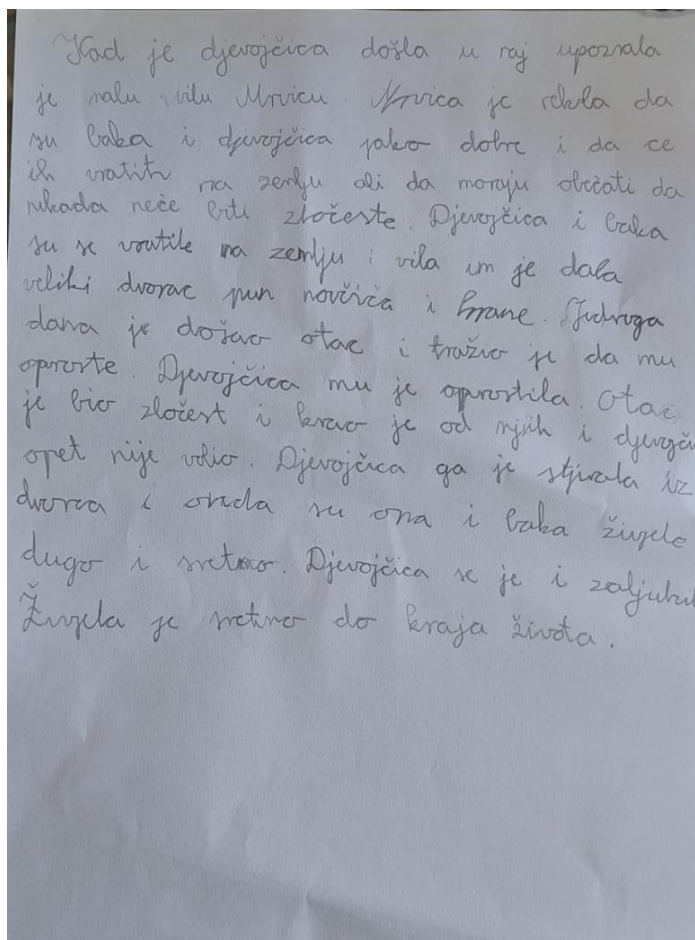 Kad je djevojčica došla u raj upoznala
je malu vilu Mrvicu. Mrvica je rekla da
su baka i djevojčica jako dobre i da ce
ih vratiti na zemlju ali da moraju obećati da
nikada neće biti zločeste. Djevojčica i baka
su se vratile na zemlju i vila im je dala
veliki dvorac pun novčića i hrane. Jednoga
dana je došao otac i tražio je da mu
oproste. Djevojčica mu je oprostila. Otac
je bio zločest i krao je od njih i
opet nije volio. Djevojčica ga je stjerala iz
dvorca i onda su ona i baka živjele
dugo i sretno. Djevojčica se je i
Živjela je sretno do kraja života.